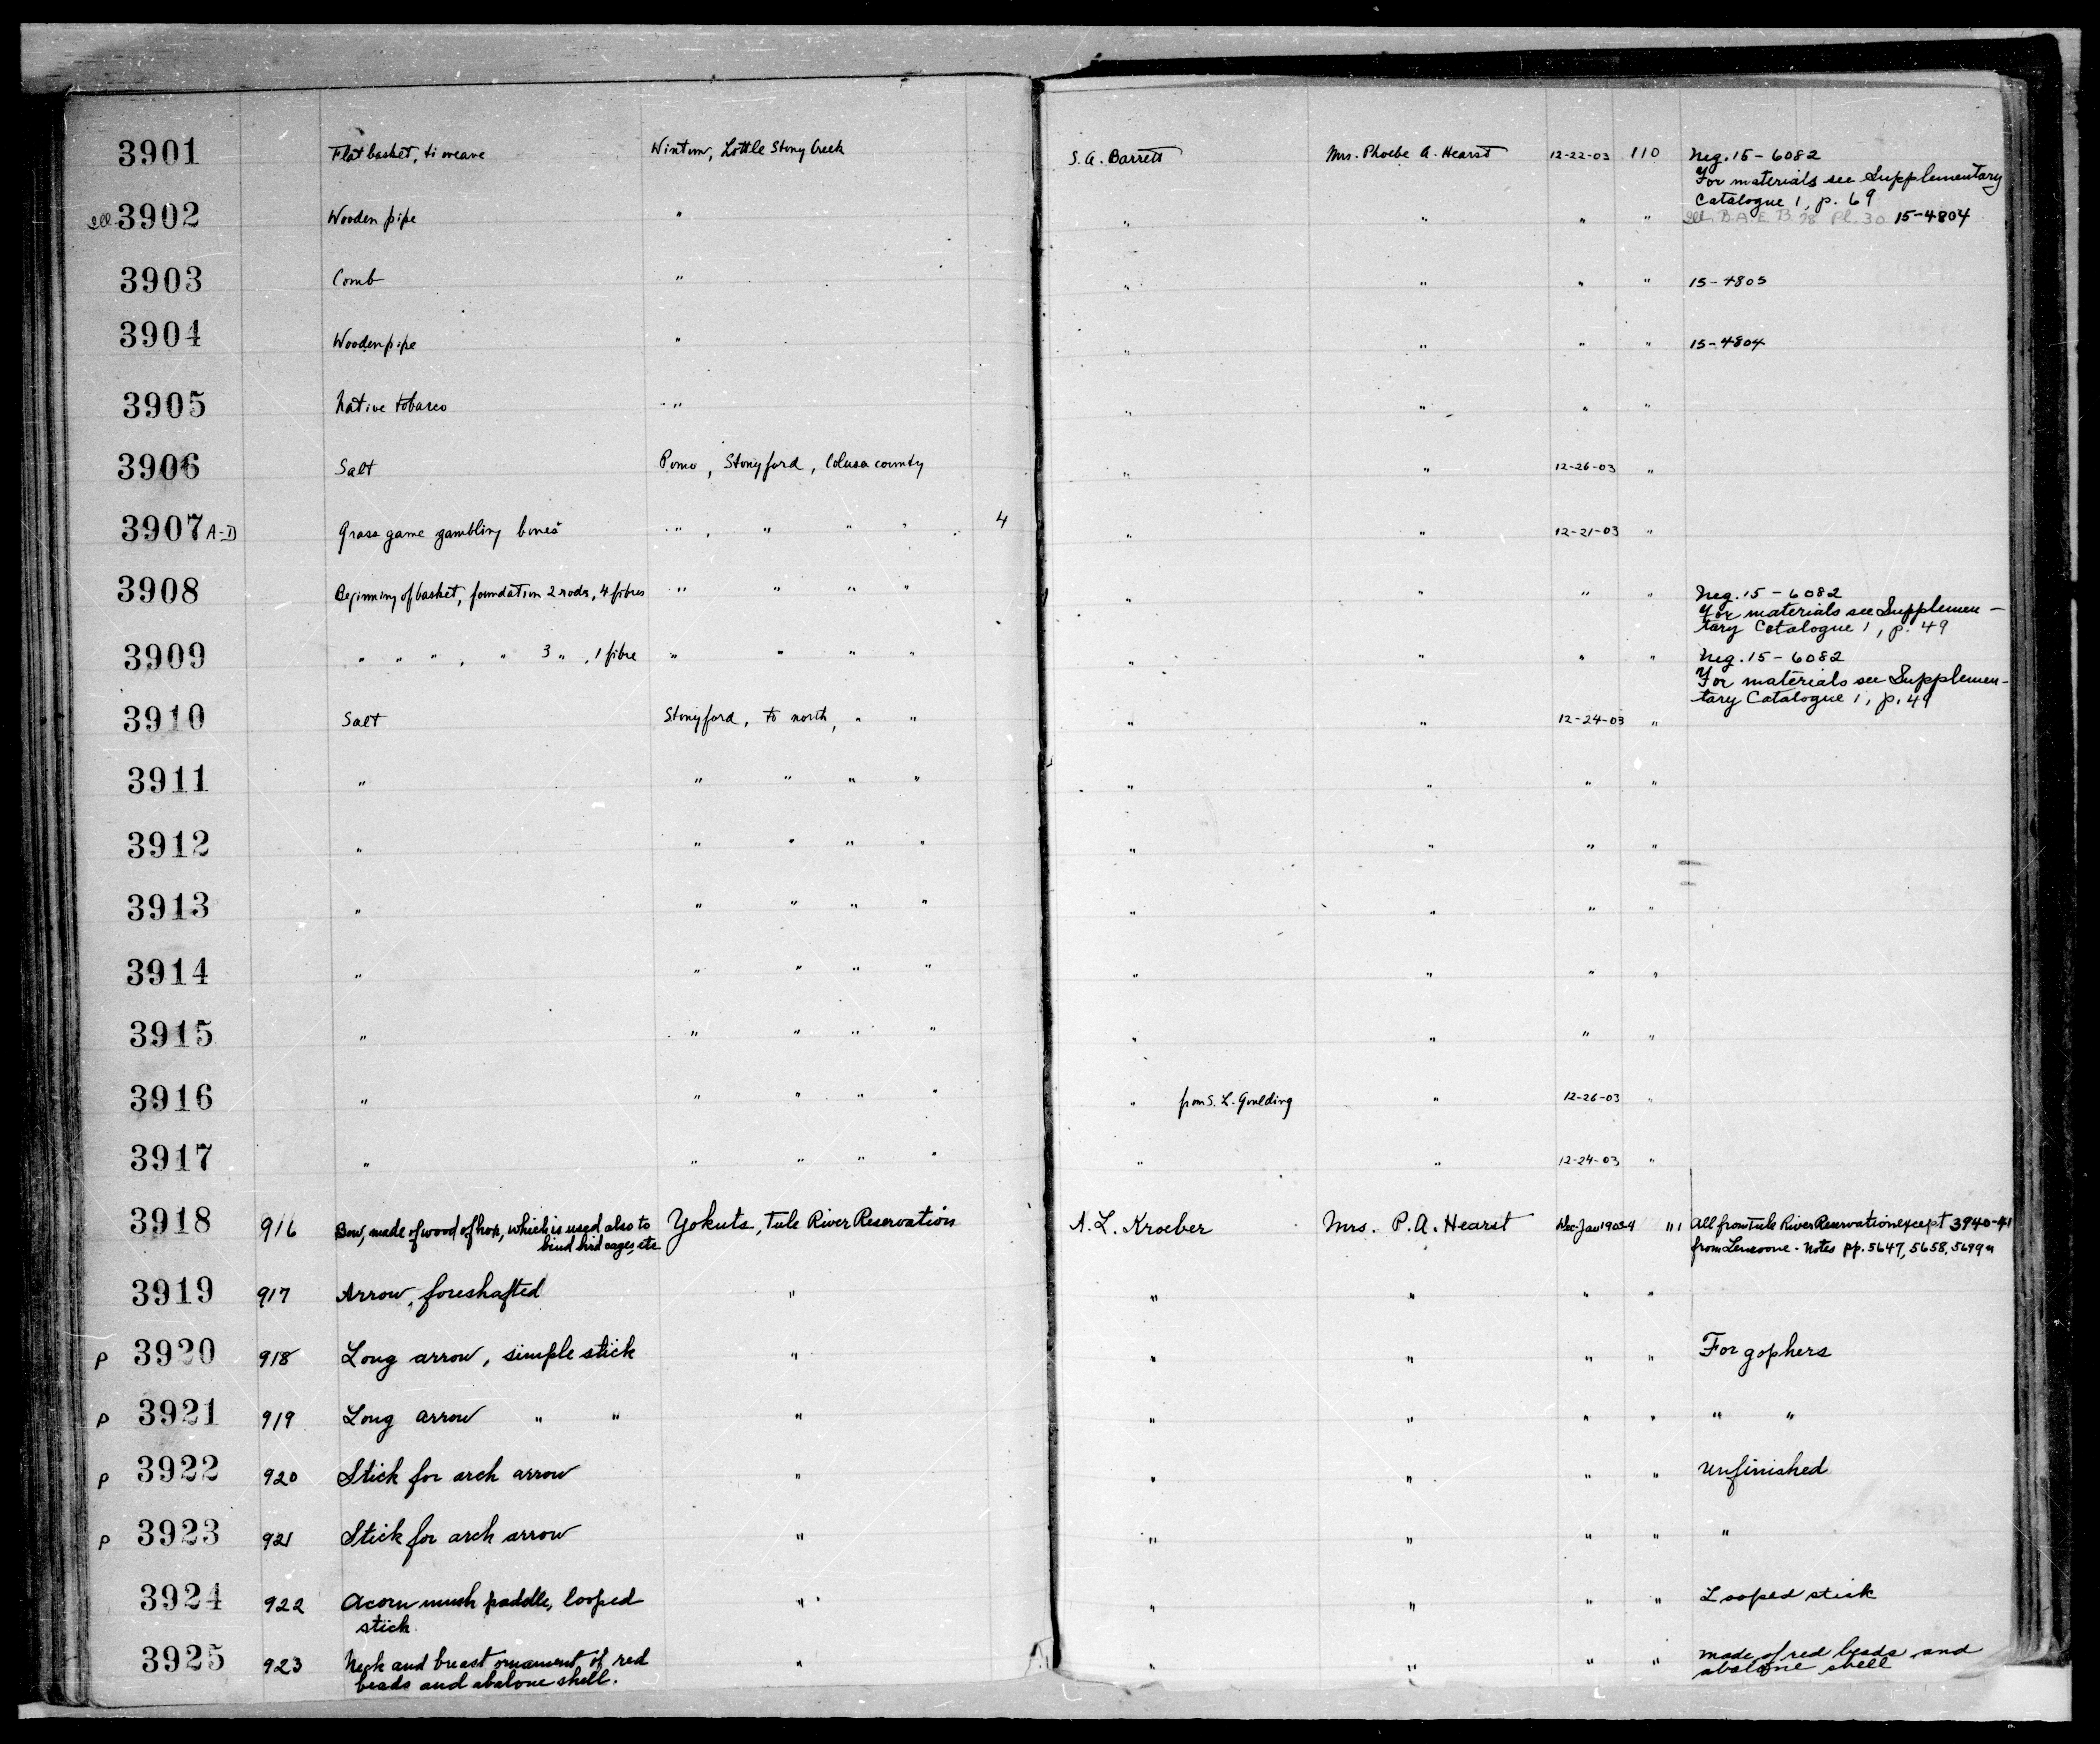 3901 Flat basket, ti weave Wintun, Little Stony Creek S. A. Barrett Mrs. Phoebe A. Hearst 12-22-03 110 Neg. 15-6082
For materials see Supplementary
Catalogue 1, p. 69
Ill. 3902 Wooden pipe " " " " " Ill. B.A.E. B. 78 Pl. 30 15-4804
3903 Comb " " " " " 15-4805
3904 Wooden pipe " " " " " 15-4804
3905 Native tobacco " " " " "
3906 Salt Pomo, Stonyford, Colusa county " " 12-26-03 "
3907 A-D Grass game gambling bones " , " " " 4 " " 12-21-03 "
3908 Beginning of basket, foundation 2 rods, 4 fibres " " " " " " " " Neg. 15-6082
For materials see Supplemen-
tary Catalogue 1, p. 49
3909 " " " , " 3 " , 1 fibre " " " " " " " " Neg. 15-6082
For materials see Supplemen-
tary Catalogue 1, p. 49
3910 Salt Stonyford, to north, " " " " 12-24-03 "
3911 " " " " " " " " "
3912 " " " " " " " " "
3913 " " " " " " " " "
3914 " " " " " " " " "
3915 " " " " " " " " "
3916 " " " " " " from S. L. Goulding " 12-26-03 "
3917 " " " " " " " 12-24-03 "
3918 916 Bow, made of wood of hox, which is used also to Yokuts, Tule River Reservation A. L. Kroeber Mrs. P. A. Hearst Dec-Jan 1903-4 111 All from Tule River Reservation except 3940-41
bind bird cages, etc from Lemoore - Notes pp. 5647, 5658, 5699
3919 917 Arrow, foreshafted " " " " "
P 3920 918 Long arrow, simple stick " " " " " For gophers
P 3921 919 Long arrow " " " " " " " " "
P 3922 920 Stick for arch arrow " " " " " Unfinished
P 3923 921 Stick for arch arrow " " " " " "
3924 922 Acorn mush paddle, looped " " " " " Looped stick
stick
3925 923 Neck and breast ornament of red " " " " " made of red beads and
beads and abalone shell. abalone shell